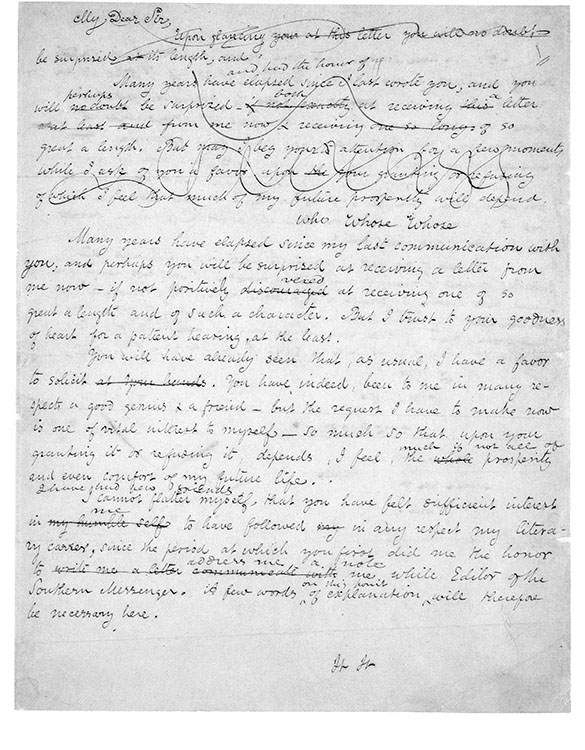 My Dear Sir,
Upon glancing your at this letter you will no doubt
be surprised at its length, and
and had the honor of
Many years have elapsed since I last wrote you, and you
perhaps both
will no doubt be surprised at receiving this a letter
at least and from me now & receiving one so long of so
great a length. But may I beg your attention for a few moments
while I ask of you a favor upon the your granting or refusing
of which I feel that much of my future prosperity will depend.
who Whose Whose
Many years have elapsed since my last communication with
you, and perhaps you will be surprised at receiving a letter from
vexed
me now — if not positively discouraged at receiving one of so
great a length and of such a character. But I trust to your goodness
of heart for a patient hearing, at the least.
You will have already seen that, as usual, I have a favor
to solicit at your hands. You have, indeed, been to me in many re-
spects a good genius & a friend — but the request I have to make now
is one of vital interest to myself — so much so that upon your
much if not all of
granting it or refusing it, depends, I feel, the whole prosperity
and even comfort of my future life.
I have had few friends
I cannot flatter myself that you have felt sufficient interest
me
in my humble self to have followed my in any respect my litera-
ry career, since the period at which you first did me the honor
address me a note
to write me a letter communicate with me while Editor of the
on this point
Southern Messenger. A few words of explanation will therefore
be necessary here.